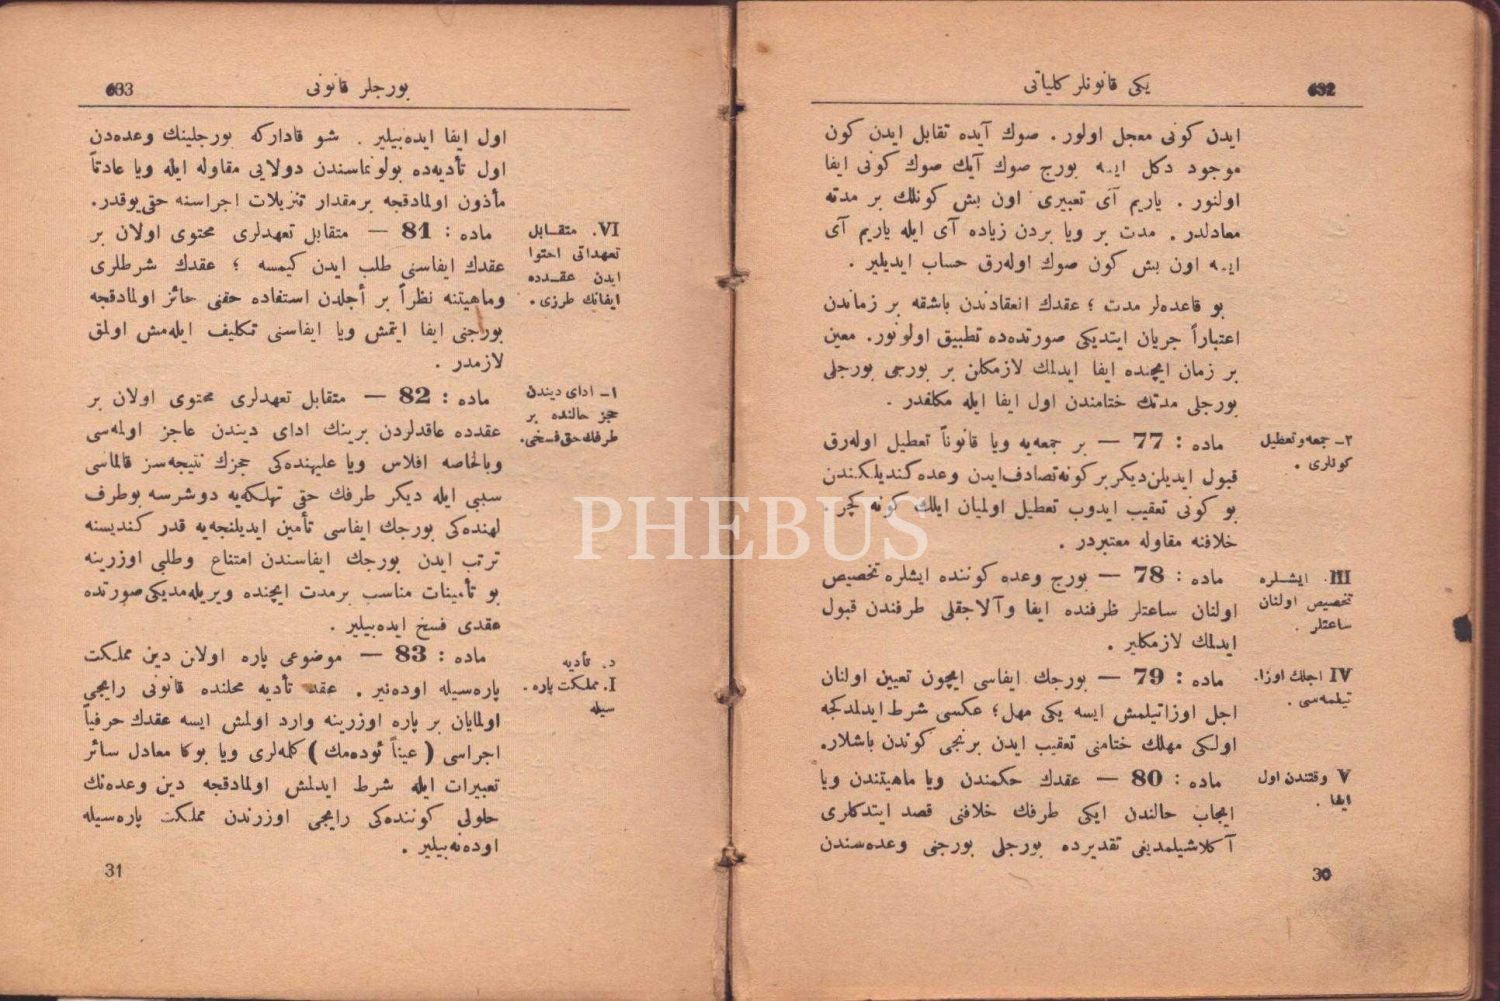 632
یکی قانونلر کلیاتی
ایدن کونی معجل اولور . صوك آیده تقابل ایدن کون
موجود دکل ایسه بورج صوك آیك صوك کونی ایفا
اولنور . یاریم آی تعبیری اون بش کونلك بر مدته
معادلدر . مدت بر ویا بردن زیاده آی ایله یاریم آی
ایسه اون بش کون صوك اولەرق حساب ایدیلیر .
بو قاعدەلر مدت ؛ عقدك انعقادندن باشقه بر زماندن
اعتباراً جریان ایتدیکی صورتدەده تطبیق اولونور. معین
بر زمان ایچنده ایفا ایدلمك لازمکلن بر بورجی بورجلی
بورجلی مدتك ختامندن اول ایفا ایله مکلفدر .
۲- جمعه وتعطیل
کونلری .
ماده : 77 — بر جمعەیه ویا قانوناً تعطیل اولەرق
قبول ایدیلن دیکر بر کونه تصادف ایدن وعده کندیلکندن
بو کونی تعقیب ایدوب تعطیل اولمیان ایلك کونه کچر .
خلافنه مقاوله معتبردر .
III. ایشلره
تخصیص اولنان
ساعتلر .
ماده : 78 — بورج وعده کوننده ایشلره تخصیص
اولنان ساعتلر ظرفنده ایفا وآلاجقلی طرفندن قبول
ایدلمك لازمکلیر .
IV اجلك اوزا.
تیلمەسی .
ماده : 79 — بورجك ایفاسی ایچون تعیین اولنان
اجل اوزاتیلمش ایسه یکی مهل؛ عکسی شرط ایدلمدکجه
اولکی مهلك ختامنی تعقیب ایدن برنجی کوندن باشلار.
V وقتندن اول
ایفا .
ماده : 80 — عقدك حکمندن ویا ماهیتندن ویا
ایجاب حالندن ایکی طرفك خلافنی قصد ایتدکلری
آکلاشیلمدیغی تقدیرده بورجلی بورجنی وعدەسندن
30
633
بورجلر قانونی
اول ایفا ایدەبیلیر . شو قادارکه بورجلینك وعدەدن
اول تأدیەده بولونماسندن دولایی مقاوله ایله ویا عادتاً
مأذون اولمادقجه برمقدار تنزیلات اجراسنه حقی یوقدر.
VI. متقابل
تعهداتی احتوا
ایدن عقدده
ایفانك طرزی .
ماده : 81 — متقابل تعهدلری محتوی اولان بر
عقدك ایفاسنی طلب ایدن کیمسه ؛ عقدك شرطلری
وماهیتنه نظراً بر أجلدن استفاده حقنی حائز اولمادقجه
بورجنی ایفا ایتمش ویا ایفاسنی تکلیف ایلەمش اولمق
لازمدر .
۱- ادای دیندن
عجز حالنده بر
طرفك حق فسخی.
ماده : 82 — متقابل تعهدلری محتوی اولان بر
عقدده عاقدلردن برینك ادای دیندن عاجز اولمەسی
وبالخاصه افلاس ویا علیهندەکی حجزك نتیجەسز قالماسی
سببی ایله دیکر طرفك حقی تهلکەیه دوشرسه بوطرف
لهندەکی بورجك ایفاسی تأمین ایدیلنجەیه قدر کندیسنه
ترتب ایدن بورجك ایفاسندن امتناع وطلبی اوزرینه
بو تأمینات مناسب برمدت ایچنده ویریلەمدیکی صورتده
عقدی فسخ ایدەبیلیر .
د. تأدیه
I. مملکت پاره .
سیله
ماده : 83 — موضوعی پاره اولان دین مملکت
پارەسیله اودەنیر . عقد تأدیه محلنده قانونی رایجی
اولمایان بر پاره اوزرینه وارد اولمش ایسه عقدك حرفیاً
اجراسی ( عیناً ئودەمك ) کلمەلری ویا بوکا معادل سائر
تعبیرات ایله شرط ایدلمش اولمادقجه دین وعدەنك
حلولی کونندەکی رایجی اوزرندن مملکت پارەسیله
اودەنەبیلیر .
31
PHEBUS